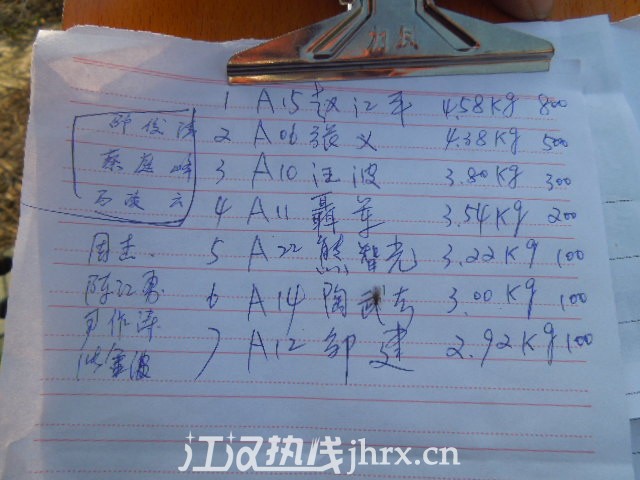 1 A15 赵江平 4.58Kg 800
2 A06 张义 4.38Kg 500
3 A10 汪波 3.80Kg 300
4 A11 聂军 3.54Kg 200
5 A22 熊智光 3.22Kg 100
6 A14 陶武 3.00Kg 100
7 A12 邹建 2.92Kg 100
周杰
陈江勇
江汉热线jhrx.cn